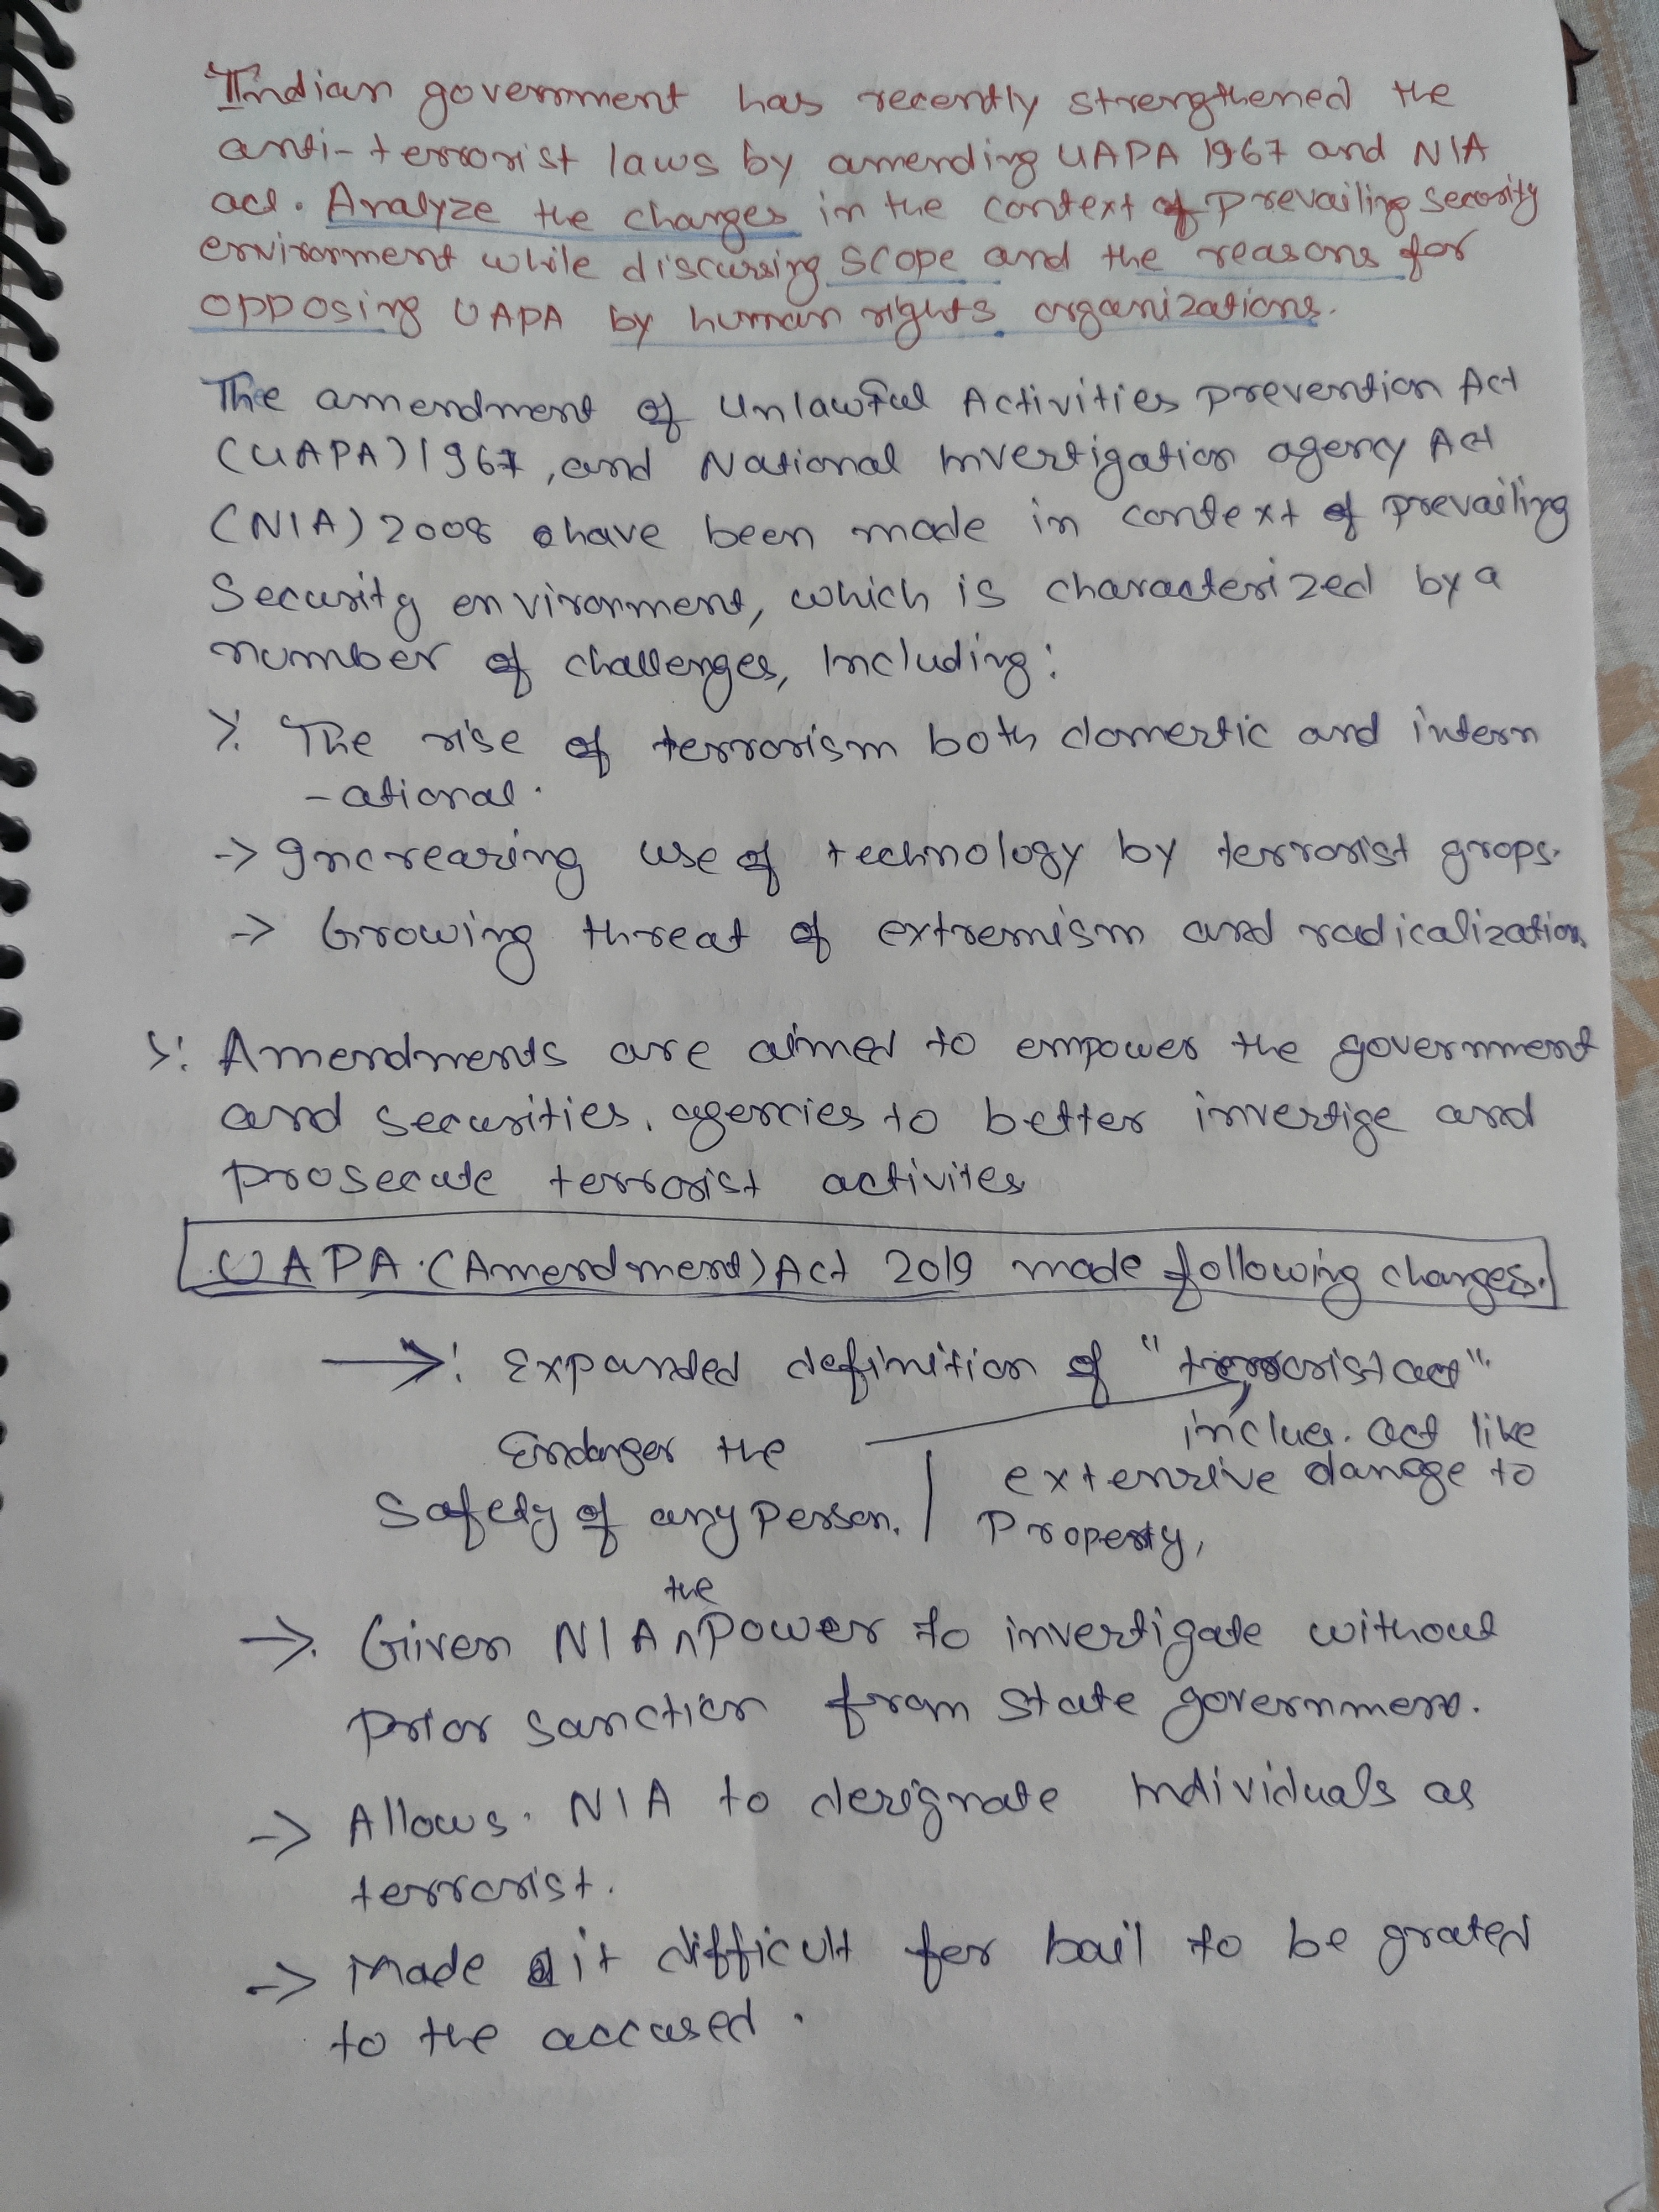 Indian government has recently strengthened the
anti-terrorist laws by amending UAPA 1967 and NIA
act. Analyze the changes in the context of prevailing security
environment while discussing scope and the reasons for
opposing UAPA by human rights organizations.
The amendment of Unlawful Activities Prevention Act
(UAPA) 1967, and National Investigation agency Act
(NIA) 2008 have been made in context of prevailing
Security environment, which is characterized by a
number of challenges, Including:
> The rise of terrorism both domestic and intern
-ational.
-> Increasing use of technology by terrorist grops.
-> Growing threat of extremism and radicalization
>: Amendments are aimed to empower the government
and securities. agencies to better investige and
prosecute terrorist activites
UAPA (Amendment) Act 2019 made following changes.
->: Expanded definition of "terrorist act"
inclues. act like
Endanger the
extensive damage to
Safety of any person. | Property,
the
-> Given NIA ^ Power to investigate without
prior sanction from state government.
-> Allows. NIA to designate Individuals as
terrorist.
-> Made it difficult for bail to be grated
to the accused.